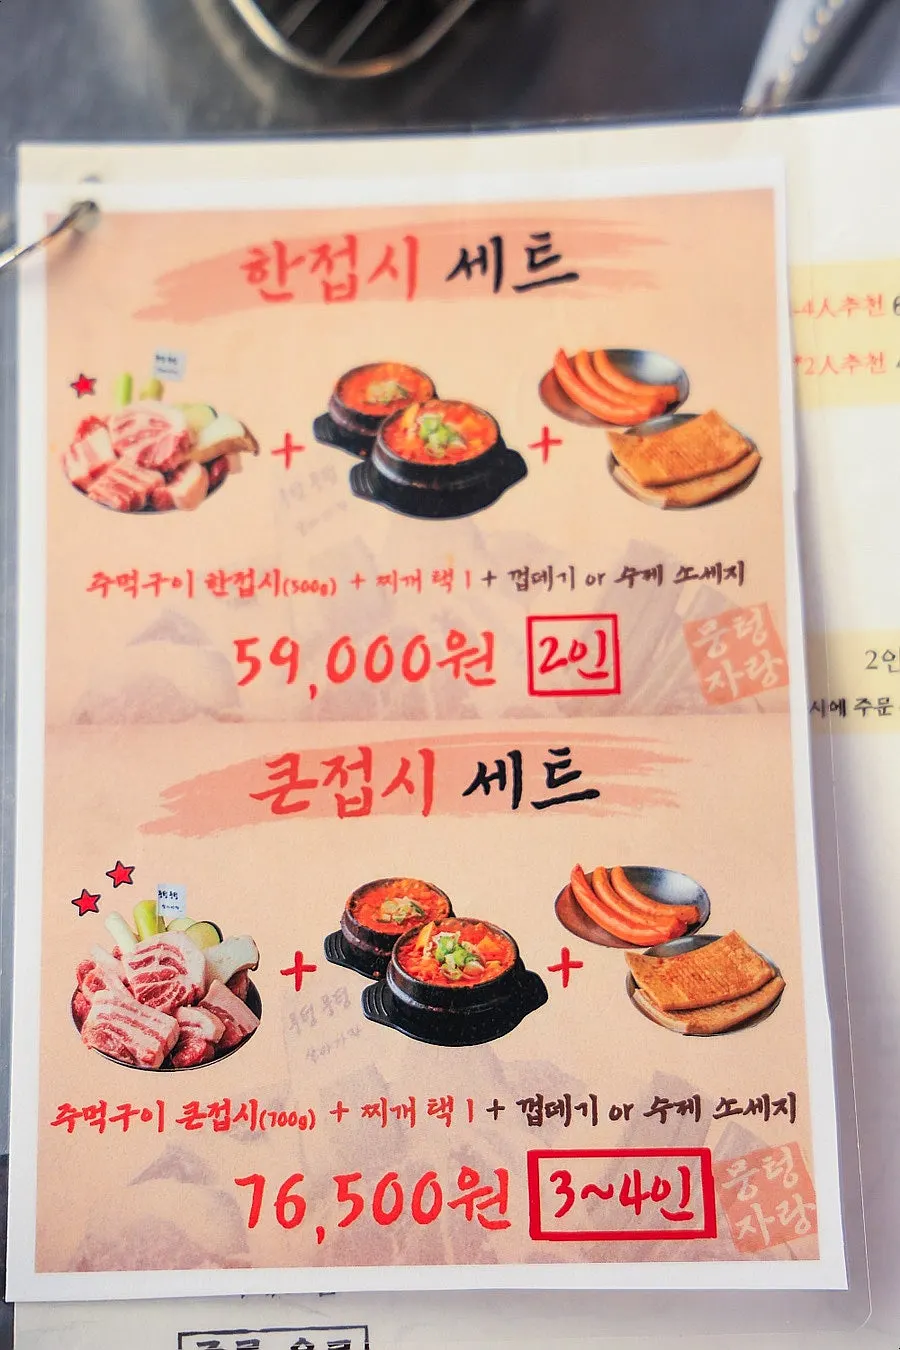 한접시 세트
주먹구이 한접시(500g) + 찌개 택 1 + 껍데기 or 수제 소세지
59,000원 2인
뭉텅
자랑
큰접시 세트
주먹구이 큰접시(700g) + 찌개 택 1 + 껍데기 or 수제 소세지
76,500원 3~4인
뭉텅
자랑
4人추천
2人추천
2인
시에 주문